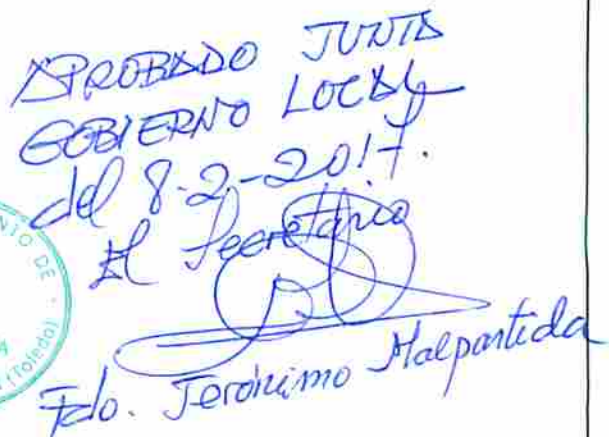 APROBADO JUNTA
GOBIERNO LOCAL
del 8-2-2017.
El Secretario
Fdo. Jerónimo Malpartida
NTO DE
(Toledo)